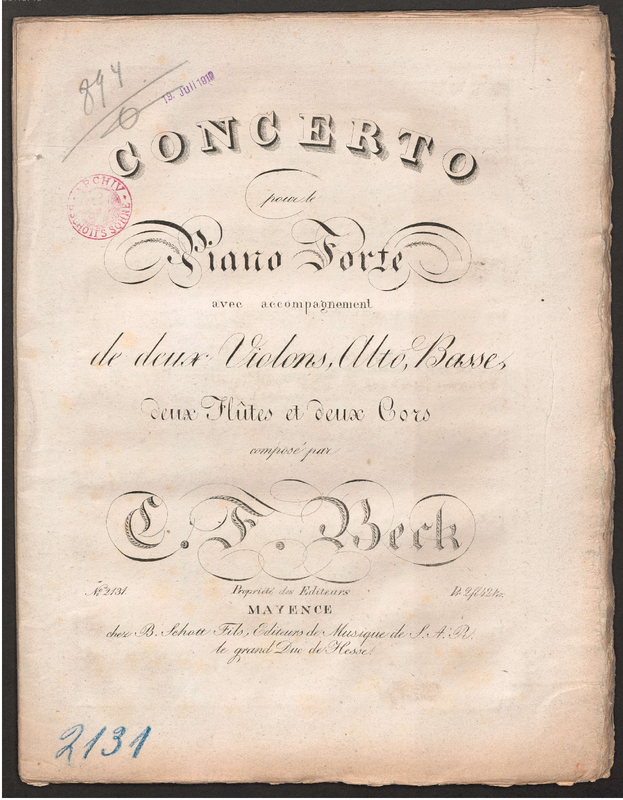 894
19. Juli 1919
CONCERTO
ARCHIV
B. SCHOTT'S SÖHNE
pour le
Piano Forte
avec accompagnement
de deux Violons, Alto, Basse,
deux Flûtes et deux Cors
composé par
C. F. Beck
No. 2131. Propriété des Editeurs Pr. 2 fl. 42 kr.
MAYENCE
chez B. Schott Fils, Editeurs de Musique de S. A. R.
le grand Duc de Hesse.
2131